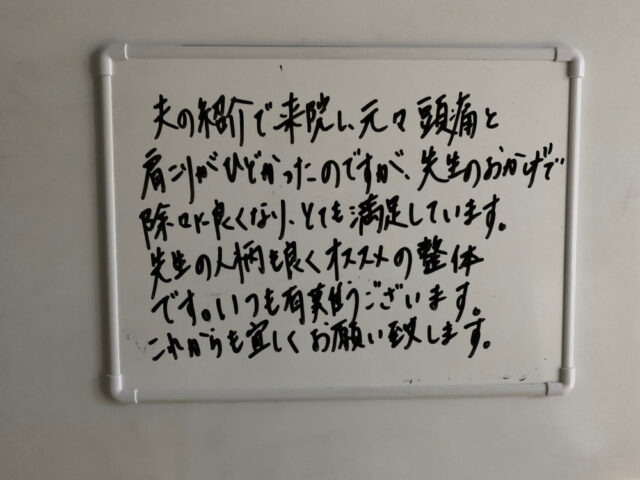 夫の紹介で来院し、元々頭痛と
肩こりがひどかったのですが、先生のおかげで
除々に良くなり、とても満足しています。
先生の人柄も良くオススメの整体
です。いつも有難うございます。
これからも宜しくお願い致します。